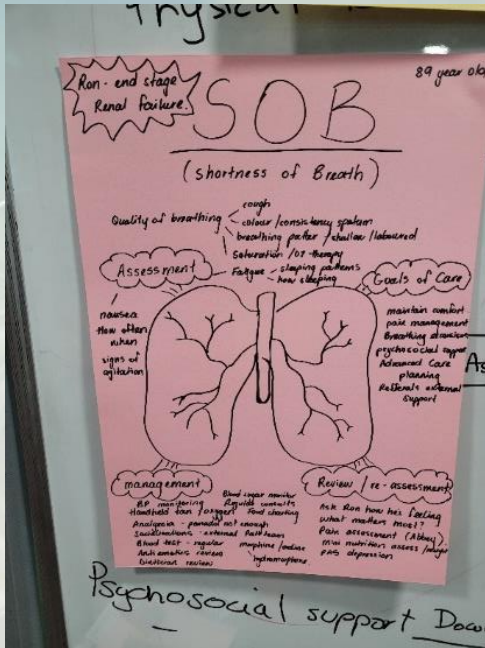 Physical
Ron - end stage
Renal Failure.
89 year old
SOB
(shortness of Breath)
Quality of breathing
cough
colour/consistency sputum
breathing patter / shallow / laboured
Saturation / O2 therapy
Assessment
Fatigue
sleeping patterns
how sleeping
nausea
How often
when
signs of
agitation
Goals of Care
maintain comfort
pain management
Breathing
psychosocial support
Advanced Care
planning
Referrals external
support
As
management
BP monitoring
Handheld fan / oxygen
Analgesia - panadol not enough
Socialisations - external Pall team
Blood test - regular
Anti emetics review
Dietician review
Blood sugar monitor
Regular consults
Food charting
morphine/
hydromorphone
Review / re-assessment
Ask Ron how he's feeling
what matters most?
Pain assessment (Abbey)
Mini nutrition assess
PAS depression
Psychosocial support